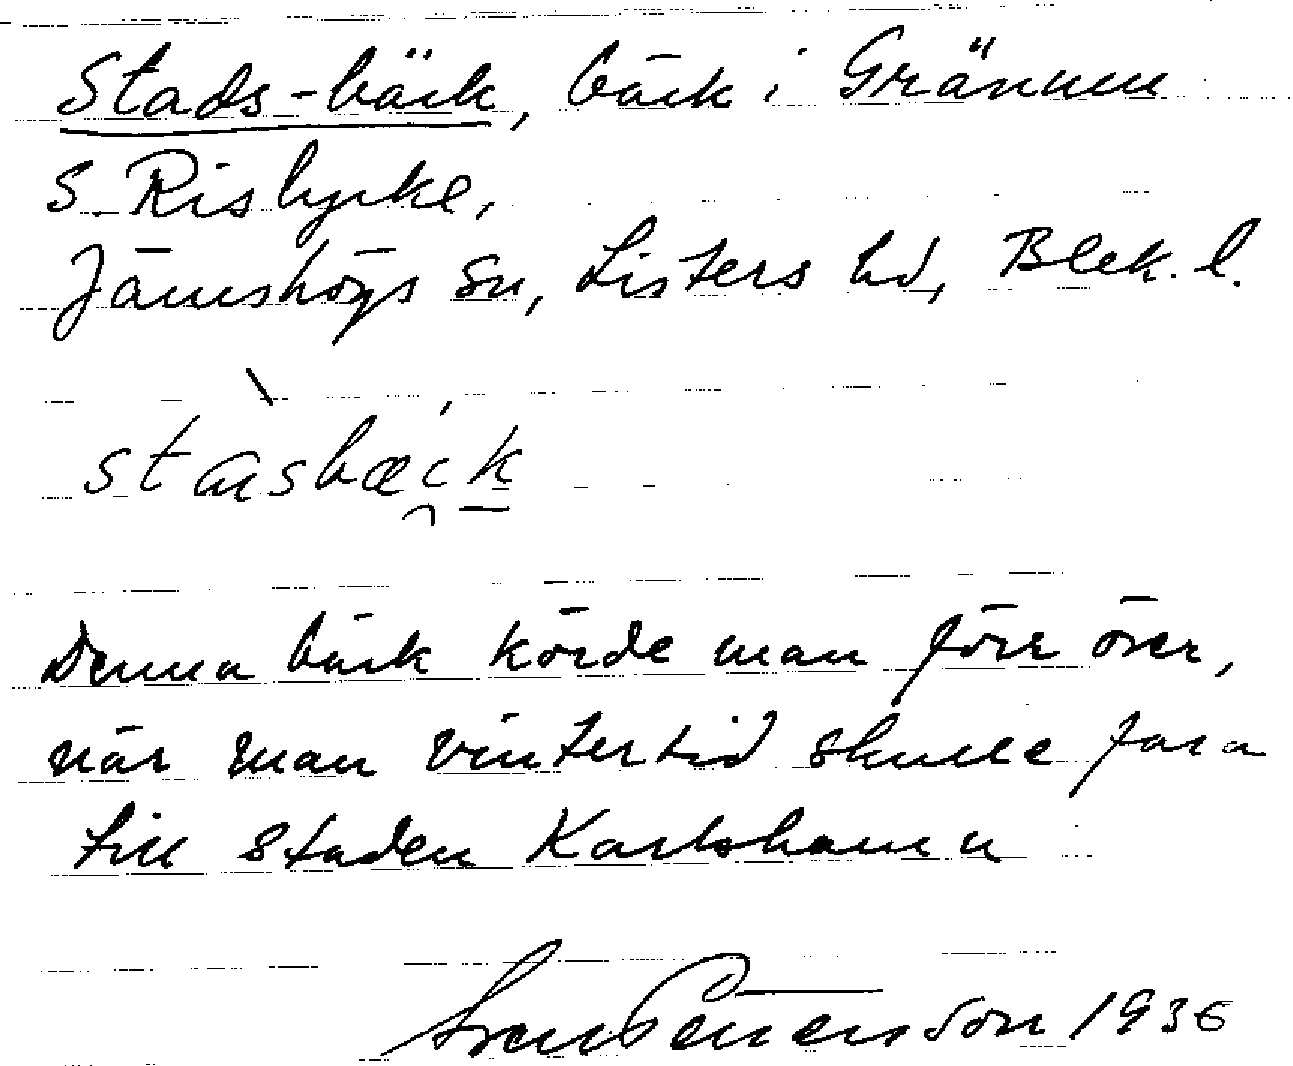 Stads-bäck, bäck i Grännen
S. Risbyrke,
Jämshögs sn, Listers hd, Blek. l.
stasbæck
Denna bäck körde man förr över,
när man vintertid skulle fara
till staden Karlshamn
Sven 1936